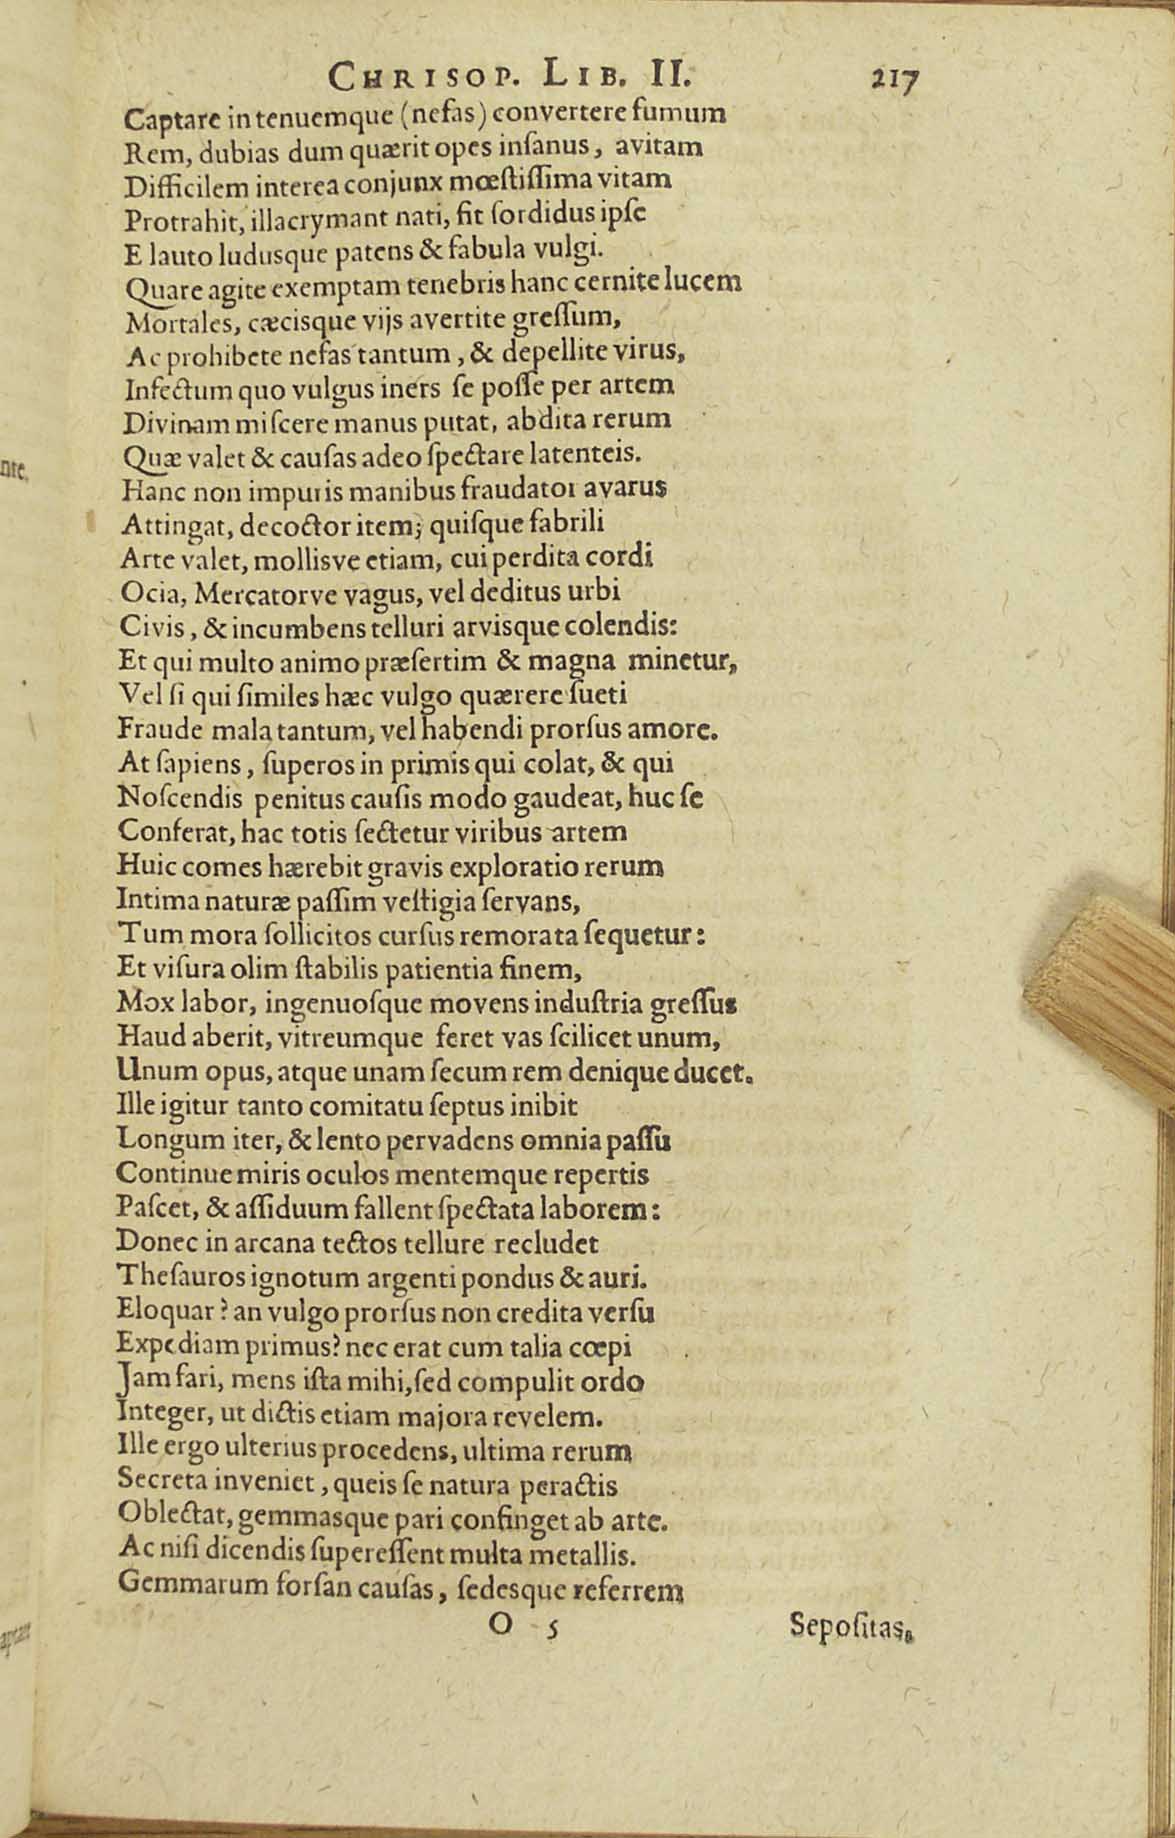 CHRISOP. LIB. II. 217
Captare in tenuemque (nefas) convertere fumum
Rem, dubias dum quærit opes inſanus, avitam
Difficilem interea conjunx mœſtiſſima vitam
Protrahit, illacrymant nati, fit ſordidus ipſe
E lauto ludusque patens & fabula vulgi.
Quare agite exemptam tenebris hanc cernite lucem
Mortales, cæcisque vijs avertite greſſum,
Ac prohibete nefas tantum, & depellite virus,
Infectum quo vulgus iners ſe poſſe per artem
Divinam miſcere manus putat, abdita rerum
Quæ valet & cauſas adeo ſpectare latenteis.
Hanc non impuris manibus fraudator avarus
Attingat, decoctor item; quiſque fabrili
Arte valet, mollisve etiam, cui perdita cordi
Ocia, Mercatorve vagus, vel deditus urbi
Civis, & incumbens telluri arvisque colendis:
Et qui multo animo præſertim & magna minetur,
Vel ſi qui ſimiles hæc vulgo quærere ſueti
Fraude mala tantum, vel habendi prorſus amore.
At ſapiens, ſuperos in primis qui colat, & qui
Noſcendis penitus cauſis modo gaudeat, huc ſe
Conferat, hac totis ſectetur viribus artem
Huic comes hærebit gravis exploratio rerum
Intima naturæ paſſim veſtigia ſervans,
Tum mora ſollicitos curſus remorata ſequetur:
Et viſura olim ſtabilis patientia finem,
Mox labor, ingenuoſque movens induſtria greſſus
Haud aberit, vitreumque feret vas ſcilicet unum,
Unum opus, atque unam ſecum rem denique ducet.
Ille igitur tanto comitatu ſeptus inibit
Longum iter, & lento pervadens omnia paſſu
Continue miris oculos mentemque repertis
Paſcet, & aſſiduum fallent ſpectata laborem:
Donec in arcana tectos tellure recludet
Theſauros ignotum argenti pondus & auri.
Eloquar? an vulgo prorſus non credita verſu
Expediam primus? nec erat cum talia cœpi
Jam fari, mens iſta mihi, ſed compulit ordo
Integer, ut dictis etiam majora revelem.
Ille ergo ulterius procedens, ultima rerum
Secreta inveniet, queis ſe natura peractis
Oblectat, gemmasque pari confinget ab arte.
Ac niſi dicendis ſupereſſent multa metallis.
Gemmarum forſan cauſas, ſedesque referrem
O 5 Sepoſitas,